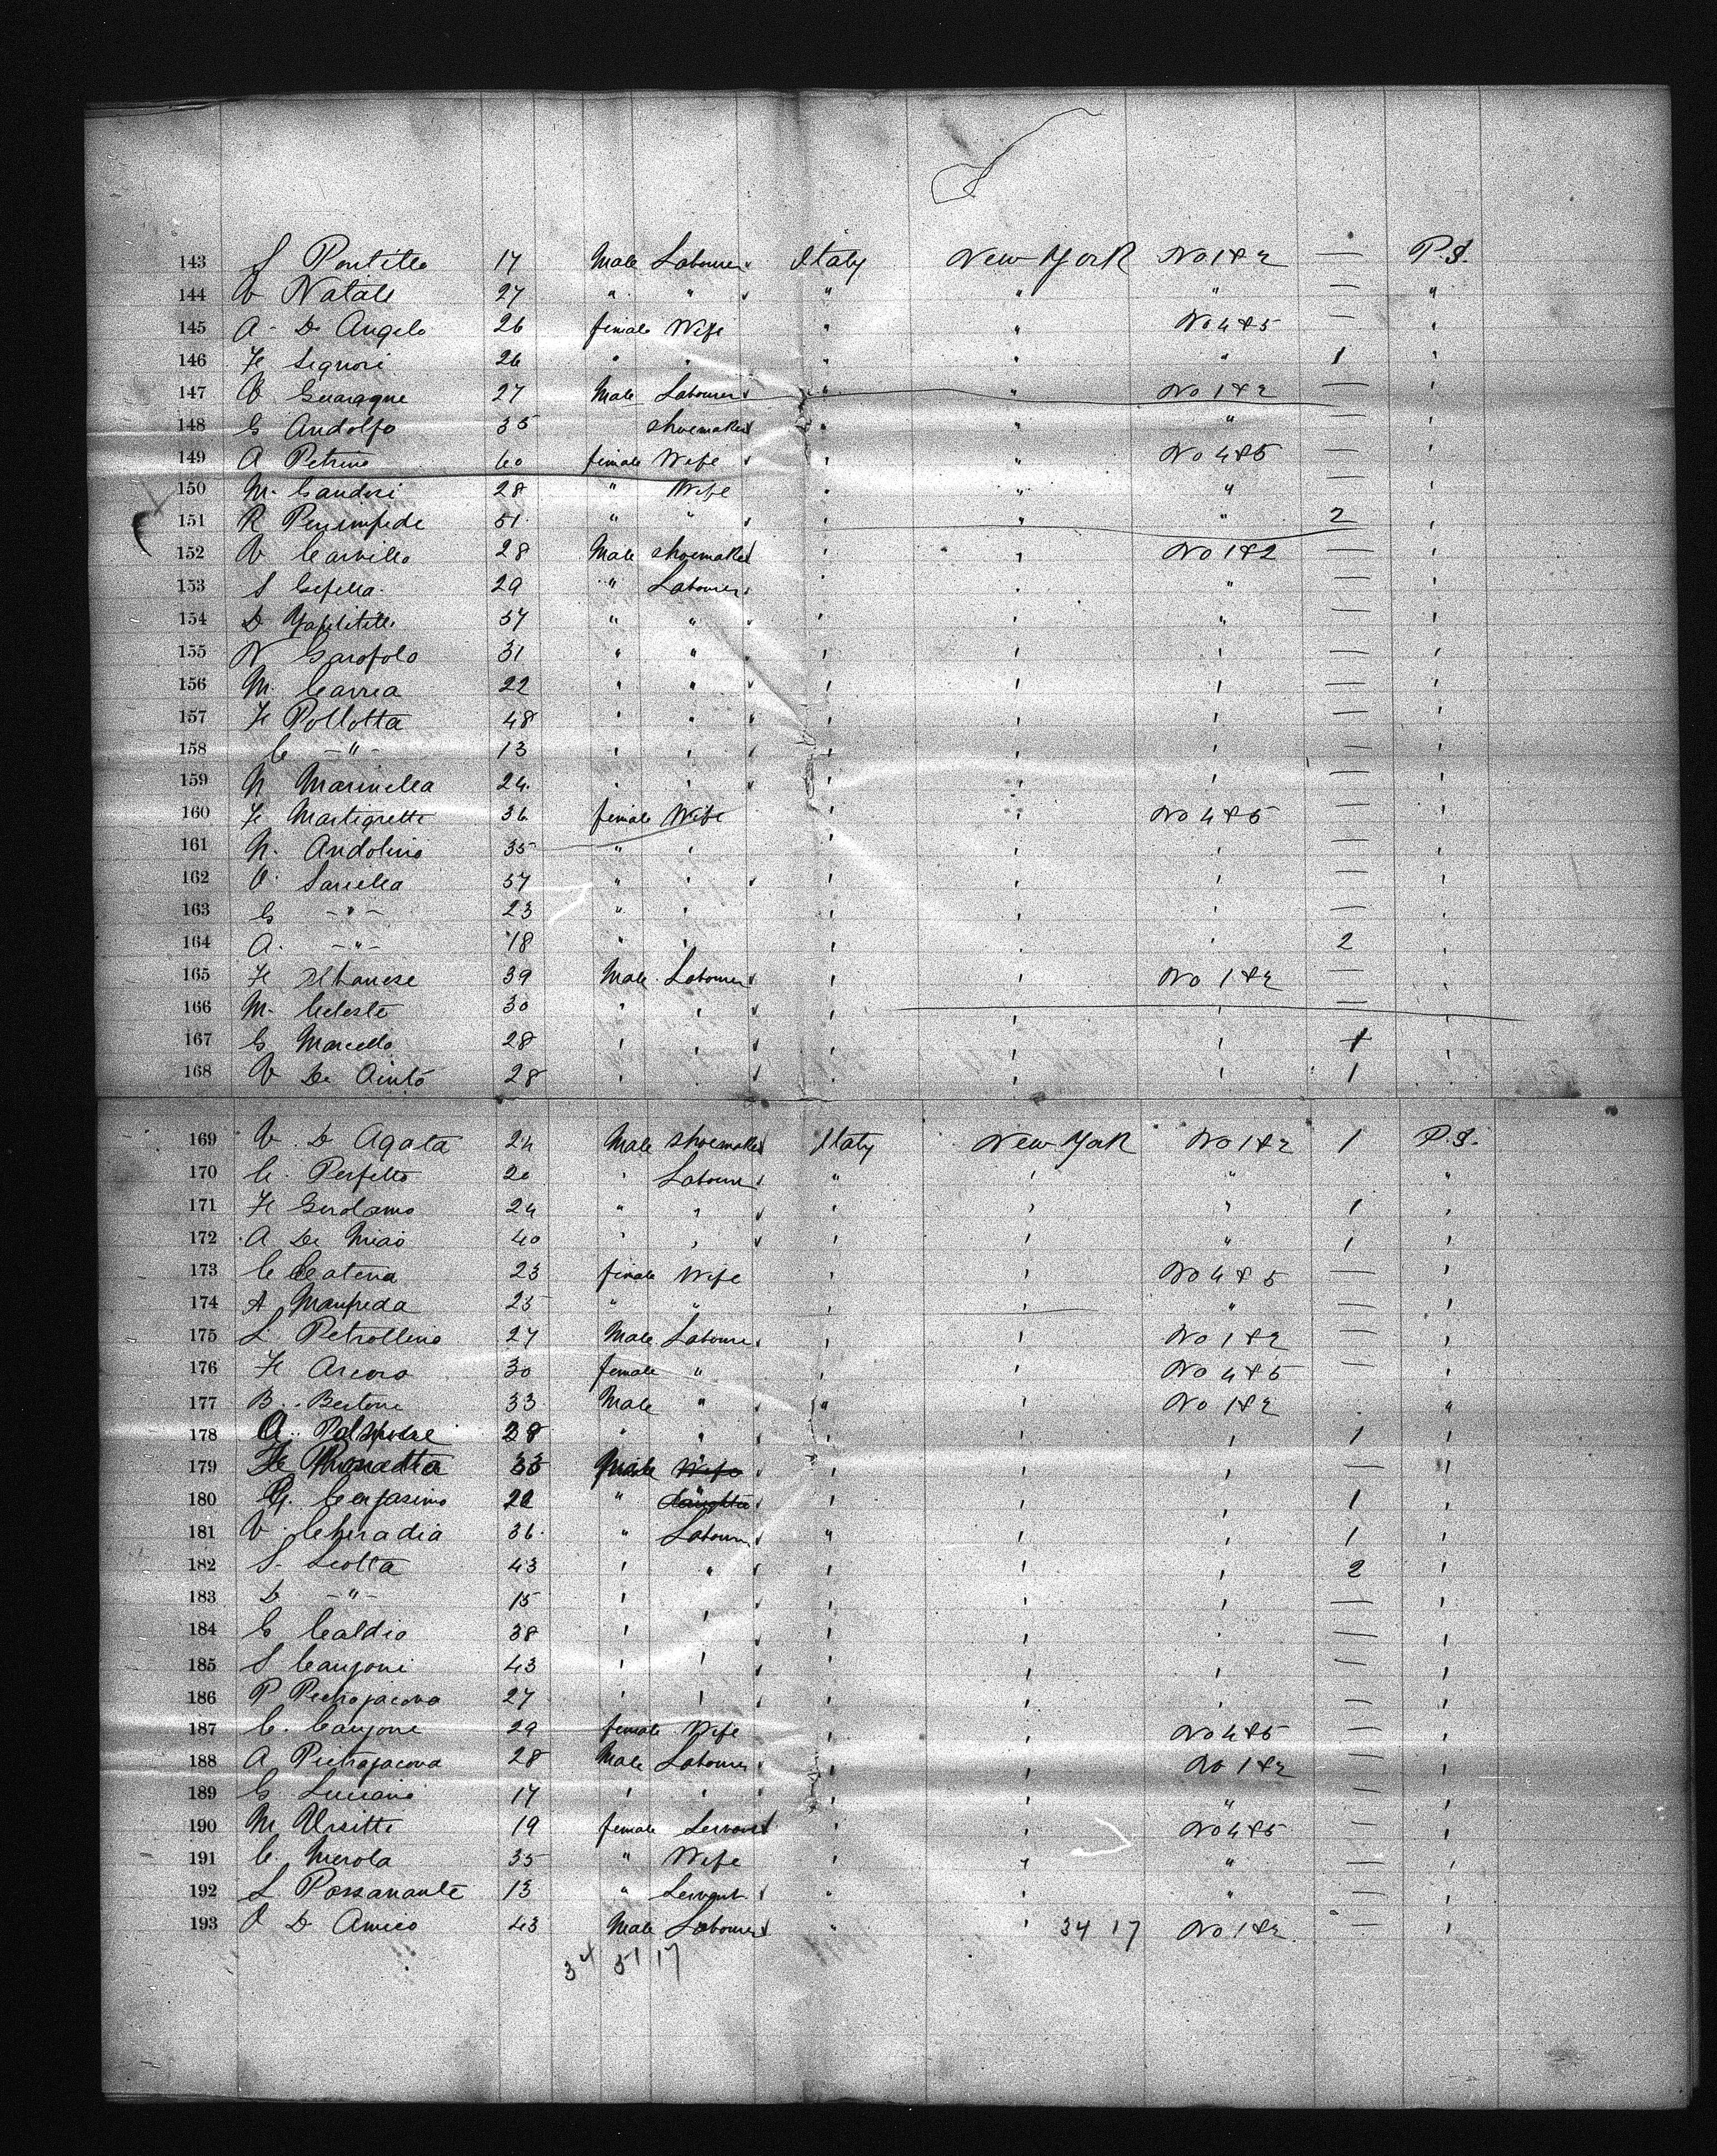 143 S Pontillo 17 Male Labourer Italy New York No 1 & 2 — P.S.
144 V Natale 27 " " " " " — "
145 A. D. Angelo 26 female Wife " " No 4 & 5 — "
146 F Signori 26 " " " " " 1 "
147 V 27 Male Labourer " " No 1 & 2 — "
148 G Andolfo 35 shoemaker " " " — "
149 A Petrino 60 female Wife " " No 4 & 5 — "
150 M. 28 " Wife " " " — "
151 R 51 " " " " " 2 "
152 V Carvillo 28 Male shoemaker " " No 1 & 2 — "
153 S 29 " Labourer " " " — "
154 D 37 " " " " " — "
155 N Garofolo 31 " " " " " — "
156 M. Carria 22 " " " " " — "
157 F Pollotta 48 " " " " " — "
158 C -"- 13 " " " " " — "
159 N Marinella 24 " " " " " — "
160 F Martignetti 36 female Wife " " No 4 & 5 — "
161 N. Andolino 35 " " " " " — "
162 V. 37 " " " " " — "
163 G -"- 23 " " " " " — "
164 A. -"- 18 " " " " " 2 "
165 F Albanese 39 Male Labourer " " No 1 & 2 — "
166 M. Celeste 30 " " " " " — "
167 G Marcello 28 " " " " " 1 "
168 V De 28 " " " " " 1 "
169 V. D Agata 24 Male shoemaker Italy New York No 1 & 2 1 P.S.
170 C. Perfetto 20 " Labourer " " " "
171 F Girolamo 24 " " " " " 1 "
172 A De 40 " " " " " 1 "
173 C Catena 23 female Wife " " No 4 & 5 — "
174 A Manfreda 25 " " " " " — "
175 L Petrollino 27 Male Labourer " " No 1 & 2 — "
176 F 30 female " " " No 4 & 5 — "
177 B. Bertone 33 Male " " " No 1 & 2 "
178 A. 38 " " " " " 1 "
179 F 33 Male Wife " " " — "
180 G. 22 " daughter " " " 1 "
181 V 36 " Labourer " " " 1 "
182 S. Liotta 43 " " " " " 2 "
183 D -"- 15 " " " " " — "
184 G Caldio 38 " " " " " — "
185 S Canzoni 43 " " " " " — "
186 P Pietrojacova 27 " " " " " — "
187 C. Canzone 29 female Wife " " No 4 & 5 — "
188 A Pietrojacova 28 Male Labourer " " No 1 & 2 — "
189 G Luciano 17 " " " " " — "
190 M 19 female Servant " " No 4 & 5 — "
191 C. Merola 35 " Wife " " " — "
192 L Possanante 13 " Servant " " " — "
193 V D Amico 43 Male Labourer " " 34 17 No 1 & 2 — "
34 51 17